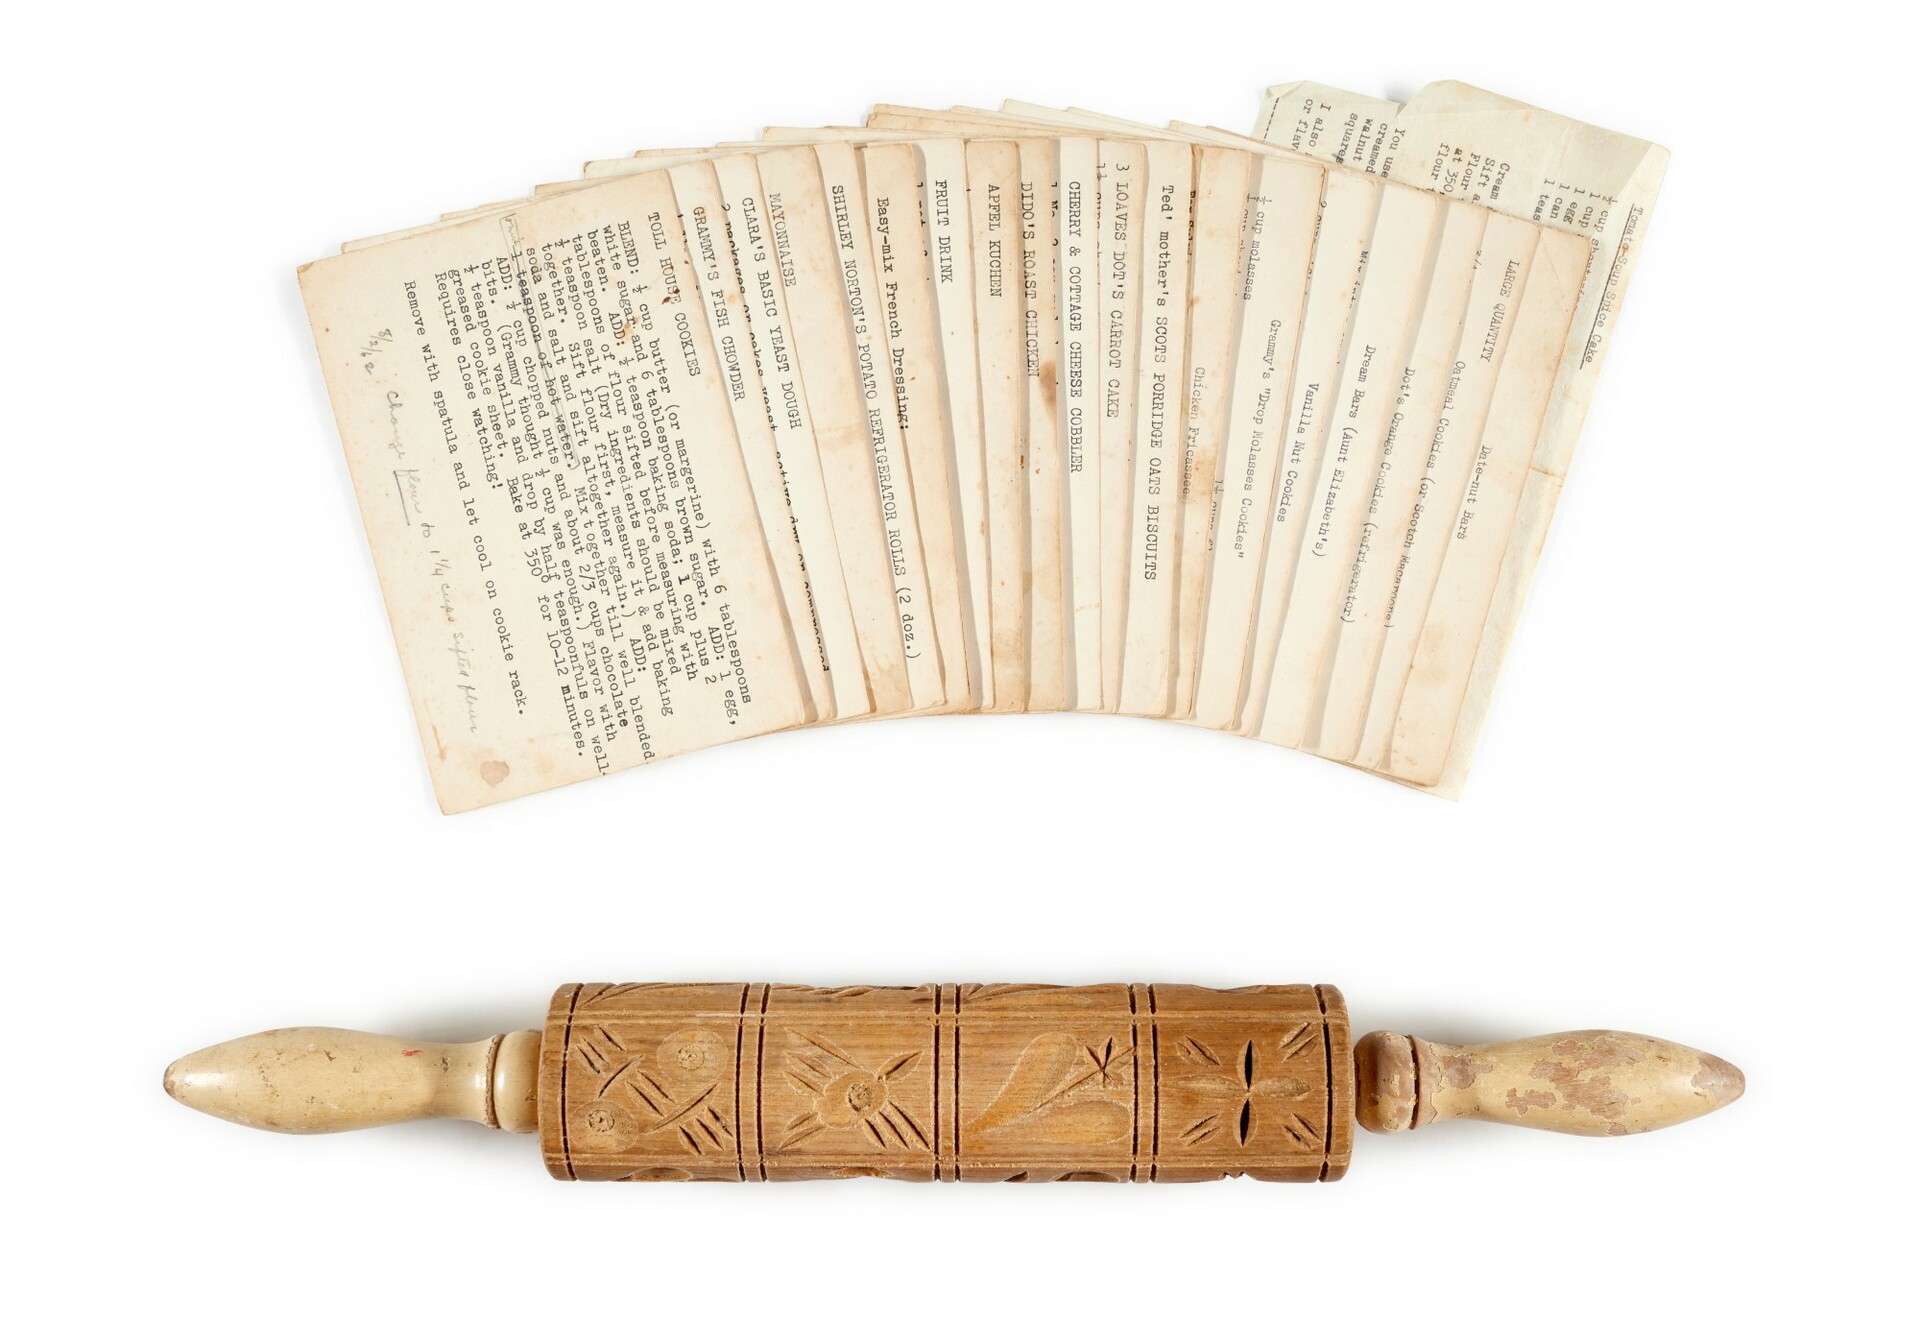 TOLL HOUSE COOKIES
BLEND: ½ cup butter (or margerine) with 6 tablespoons
white sugar and 6 tablespoons brown sugar. ADD: 1 egg,
beaten. ADD: ½ teaspoon baking soda; 1 cup plus 2
tablespoons of flour sifted before measuring with
½ teaspoon salt (Dry ingredients should be mixed
together. Sift flour first, measure it & add baking
soda and salt and sift altogether again.) ADD:
1 teaspoon of hot water.) Mix t ogether till well blended
ADD: ½ cup chopped nuts and about 2/3 cups chocolate
bits. (Grammy thought ½ cup was enough.) Flavor with
½ teaspoon vanilla and drop by half teaspoonfuls on well
greased cookie sheet. Bake at 350° for 10-12 minutes.
Requires close watching!
Remove with spatula and let cool on cookie rack.
change flour to 1 1/4 cups sifted flour
GRAMMY'S FISH CHOWDER
CLARA'S BASIC YEAST DOUGH
2 packages or cakes yeast, active dry or compressed
MAYONNAISE
SHIRLEY NORTON'S POTATO REFRIGERATOR ROLLS (2 doz.)
Easy-mix French Dressing:
FRUIT DRINK
APFEL KUCHEN
DIDO'S ROAST CHICKEN
CHERRY & COTTAGE CHEESE COBBLER
3 LOAVES DOT'S CARROT CAKE
Ted' mother's SCOTS PORRIDGE OATS BISCUITS
Chicken Fricassee
Grammy's "Drop Molasses Cookies"
½ cup molasses
Vanilla Nut Cookies
Dream Bars (Aunt Elizabeth's)
Dot's Orange Cookies (refrigerator)
Oatmeal Cookies (or Scotch Macaroons)
LARGE QUANTITY
Date-nut Bars
Tomato Soup Spice Cake
½ cup
1 cup
1 egg
1 can
1 teas
Cream
Sift
Flour
at 350
flour
You use
creamed
walnut
squares
I also
or